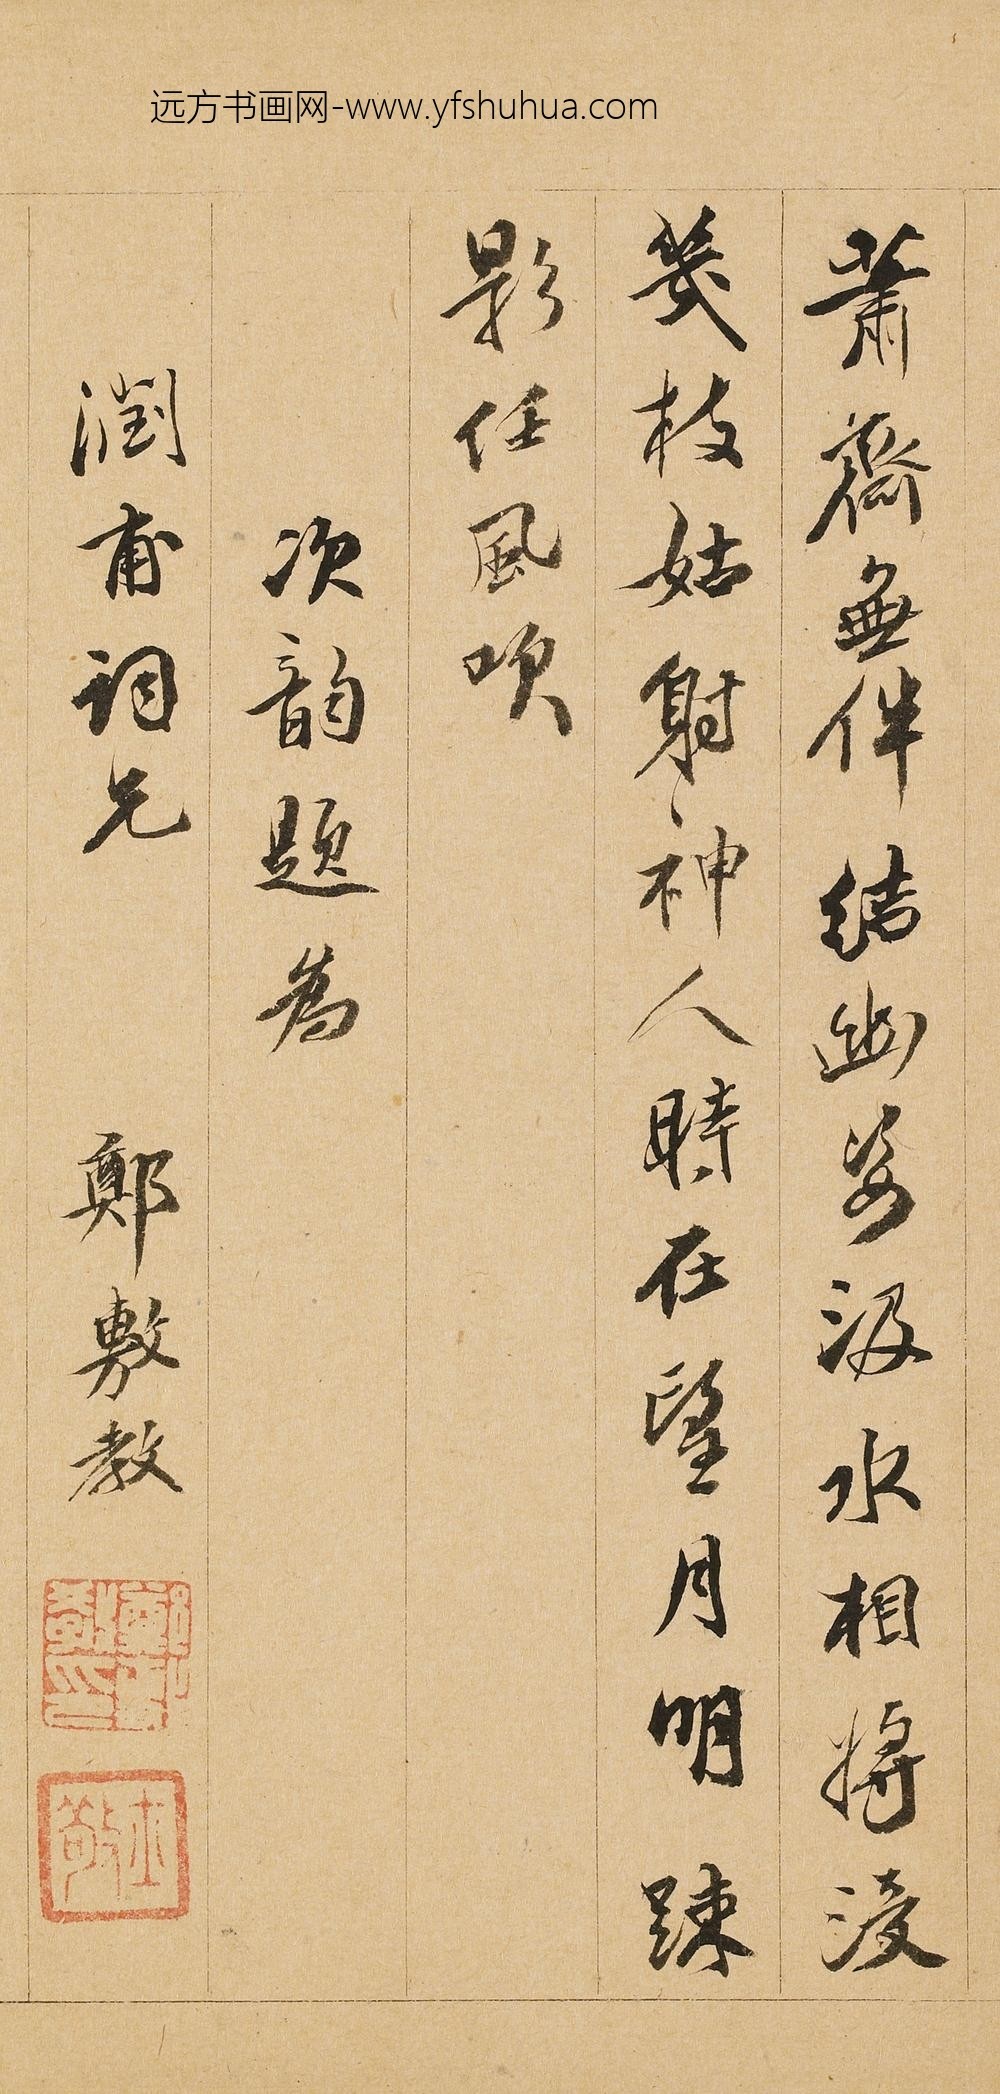 远方书画网-www.yfshuhua.com
蕭齋無伴結幽姿汲水相將浸
幾枝姑射神人時在望月明踈
影任風吹
次韵題為
潤甫詞兄
鄭敷教